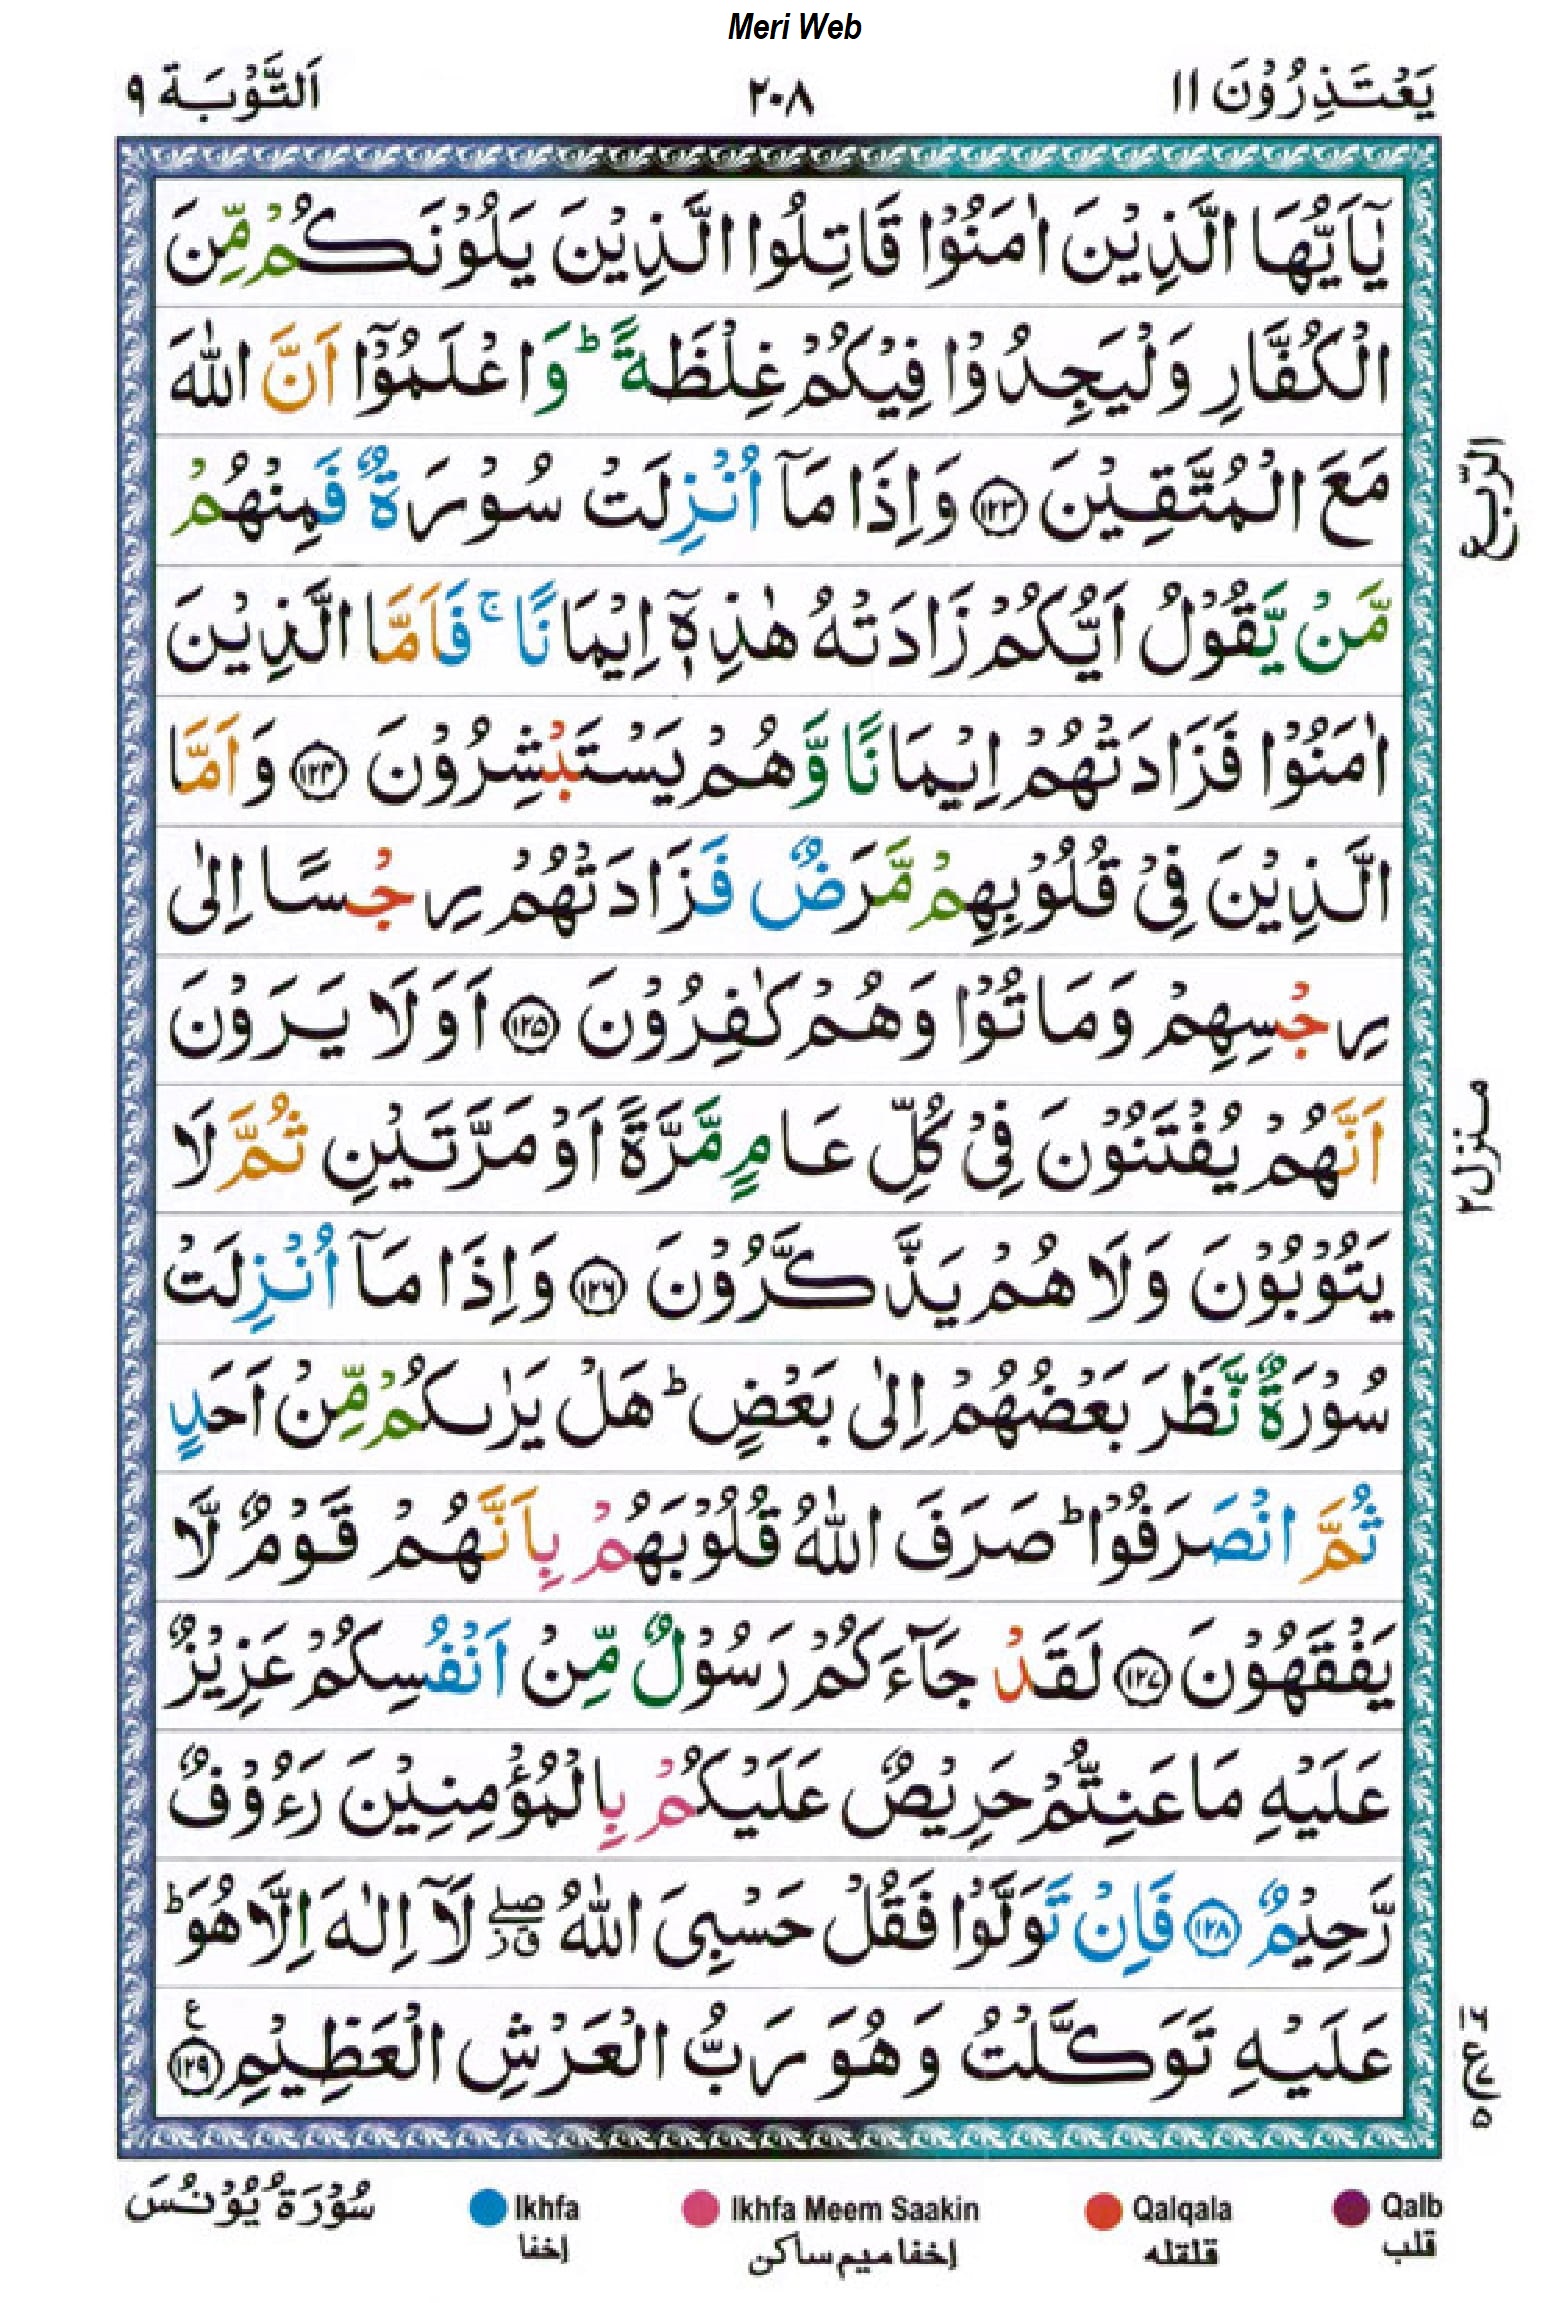 Meri Web
يَعْتَذِرُوْنَ ١١
٢٠٨
اَلتَّوْبَة ٩
يٰٓاَيُّهَا الَّذِيْنَ اٰمَنُوْا قَاتِلُوا الَّذِيْنَ يَلُوْنَكُمْ مِّنَ
الْكُفَّارِ وَلْيَجِدُوْا فِيْكُمْ غِلْظَةً ؕ وَاعْلَمُوْۤا اَنَّ اللّٰهَ
مَعَ الْمُتَّقِيْنَ ﴿١٢٣﴾ وَاِذَا مَاۤ اُنْزِلَتْ سُوْرَةٌ فَمِنْهُمْ
الرُّبع
مَّنْ يَّقُوْلُ اَيُّكُمْ زَادَتْهُ هٰذِهٖۤ اِيْمَانًا ۚ فَاَمَّا الَّذِيْنَ
اٰمَنُوْا فَزَادَتْهُمْ اِيْمَانًا وَّهُمْ يَسْتَبْشِرُوْنَ ﴿١٢٤﴾ وَاَمَّا
الَّذِيْنَ فِيْ قُلُوْبِهِمْ مَّرَضٌ فَزَادَتْهُمْ رِجْسًا اِلٰى
رِجْسِهِمْ وَمَاتُوْا وَهُمْ كٰفِرُوْنَ ﴿١٢٥﴾ اَوَلَا يَرَوْنَ
اَنَّهُمْ يُفْتَنُوْنَ فِيْ كُلِّ عَامٍ مَّرَّةً اَوْ مَرَّتَيْنِ ثُمَّ لَا
منزل ٢
يَتُوْبُوْنَ وَلَا هُمْ يَذَّكَّرُوْنَ ﴿١٢٦﴾ وَاِذَا مَاۤ اُنْزِلَتْ
سُوْرَةٌ نَّظَرَ بَعْضُهُمْ اِلٰى بَعْضٍ ؕ هَلْ يَرٰىكُمْ مِّنْ اَحَدٍ
ثُمَّ انْصَرَفُوْا ؕ صَرَفَ اللّٰهُ قُلُوْبَهُمْ بِاَنَّهُمْ قَوْمٌ لَّا
يَفْقَهُوْنَ ﴿١٢٧﴾ لَقَدْ جَآءَكُمْ رَسُوْلٌ مِّنْ اَنْفُسِكُمْ عَزِيْزٌ
عَلَيْهِ مَا عَنِتُّمْ حَرِيْصٌ عَلَيْكُمْ بِالْمُؤْمِنِيْنَ رَءُوْفٌ
رَّحِيْمٌ ﴿١٢٨﴾ فَاِنْ تَوَلَّوْا فَقُلْ حَسْبِيَ اللّٰهُ ۖ لَاۤ اِلٰهَ اِلَّا هُوَ ؕ
عَلَيْهِ تَوَكَّلْتُ وَهُوَ رَبُّ الْعَرْشِ الْعَظِيْمِ ﴿١٢٩﴾ ع
سُوْرَةُ يُوْنُسَ
Ikhfa
Ikhfa Meem Saakin
Qalqala
Qalb
إخفا
إخفا ميم ساكن
قلقله
قلب